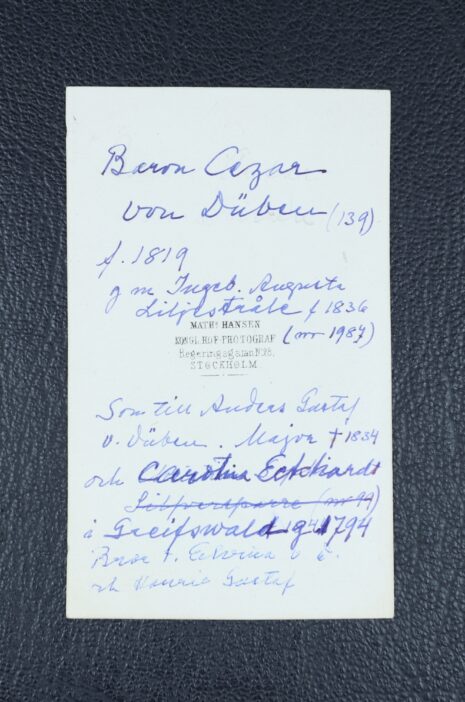 Baron Cezar
von Düben (139)
f. 1819
g m Ingeb. Augusta
Liljestråle f 1836
(nr 1987)
MATHS HANSEN
KONGL. HOF-PHOTOGRAF
Regeringsgatan No 28.
STOCKHOLM.
Son till Anders Gustaf
v. Düben. Major † 1834
och Carolina Eckhardt
i Greifswald g 1794
Bror t.
och Henric Gustaf